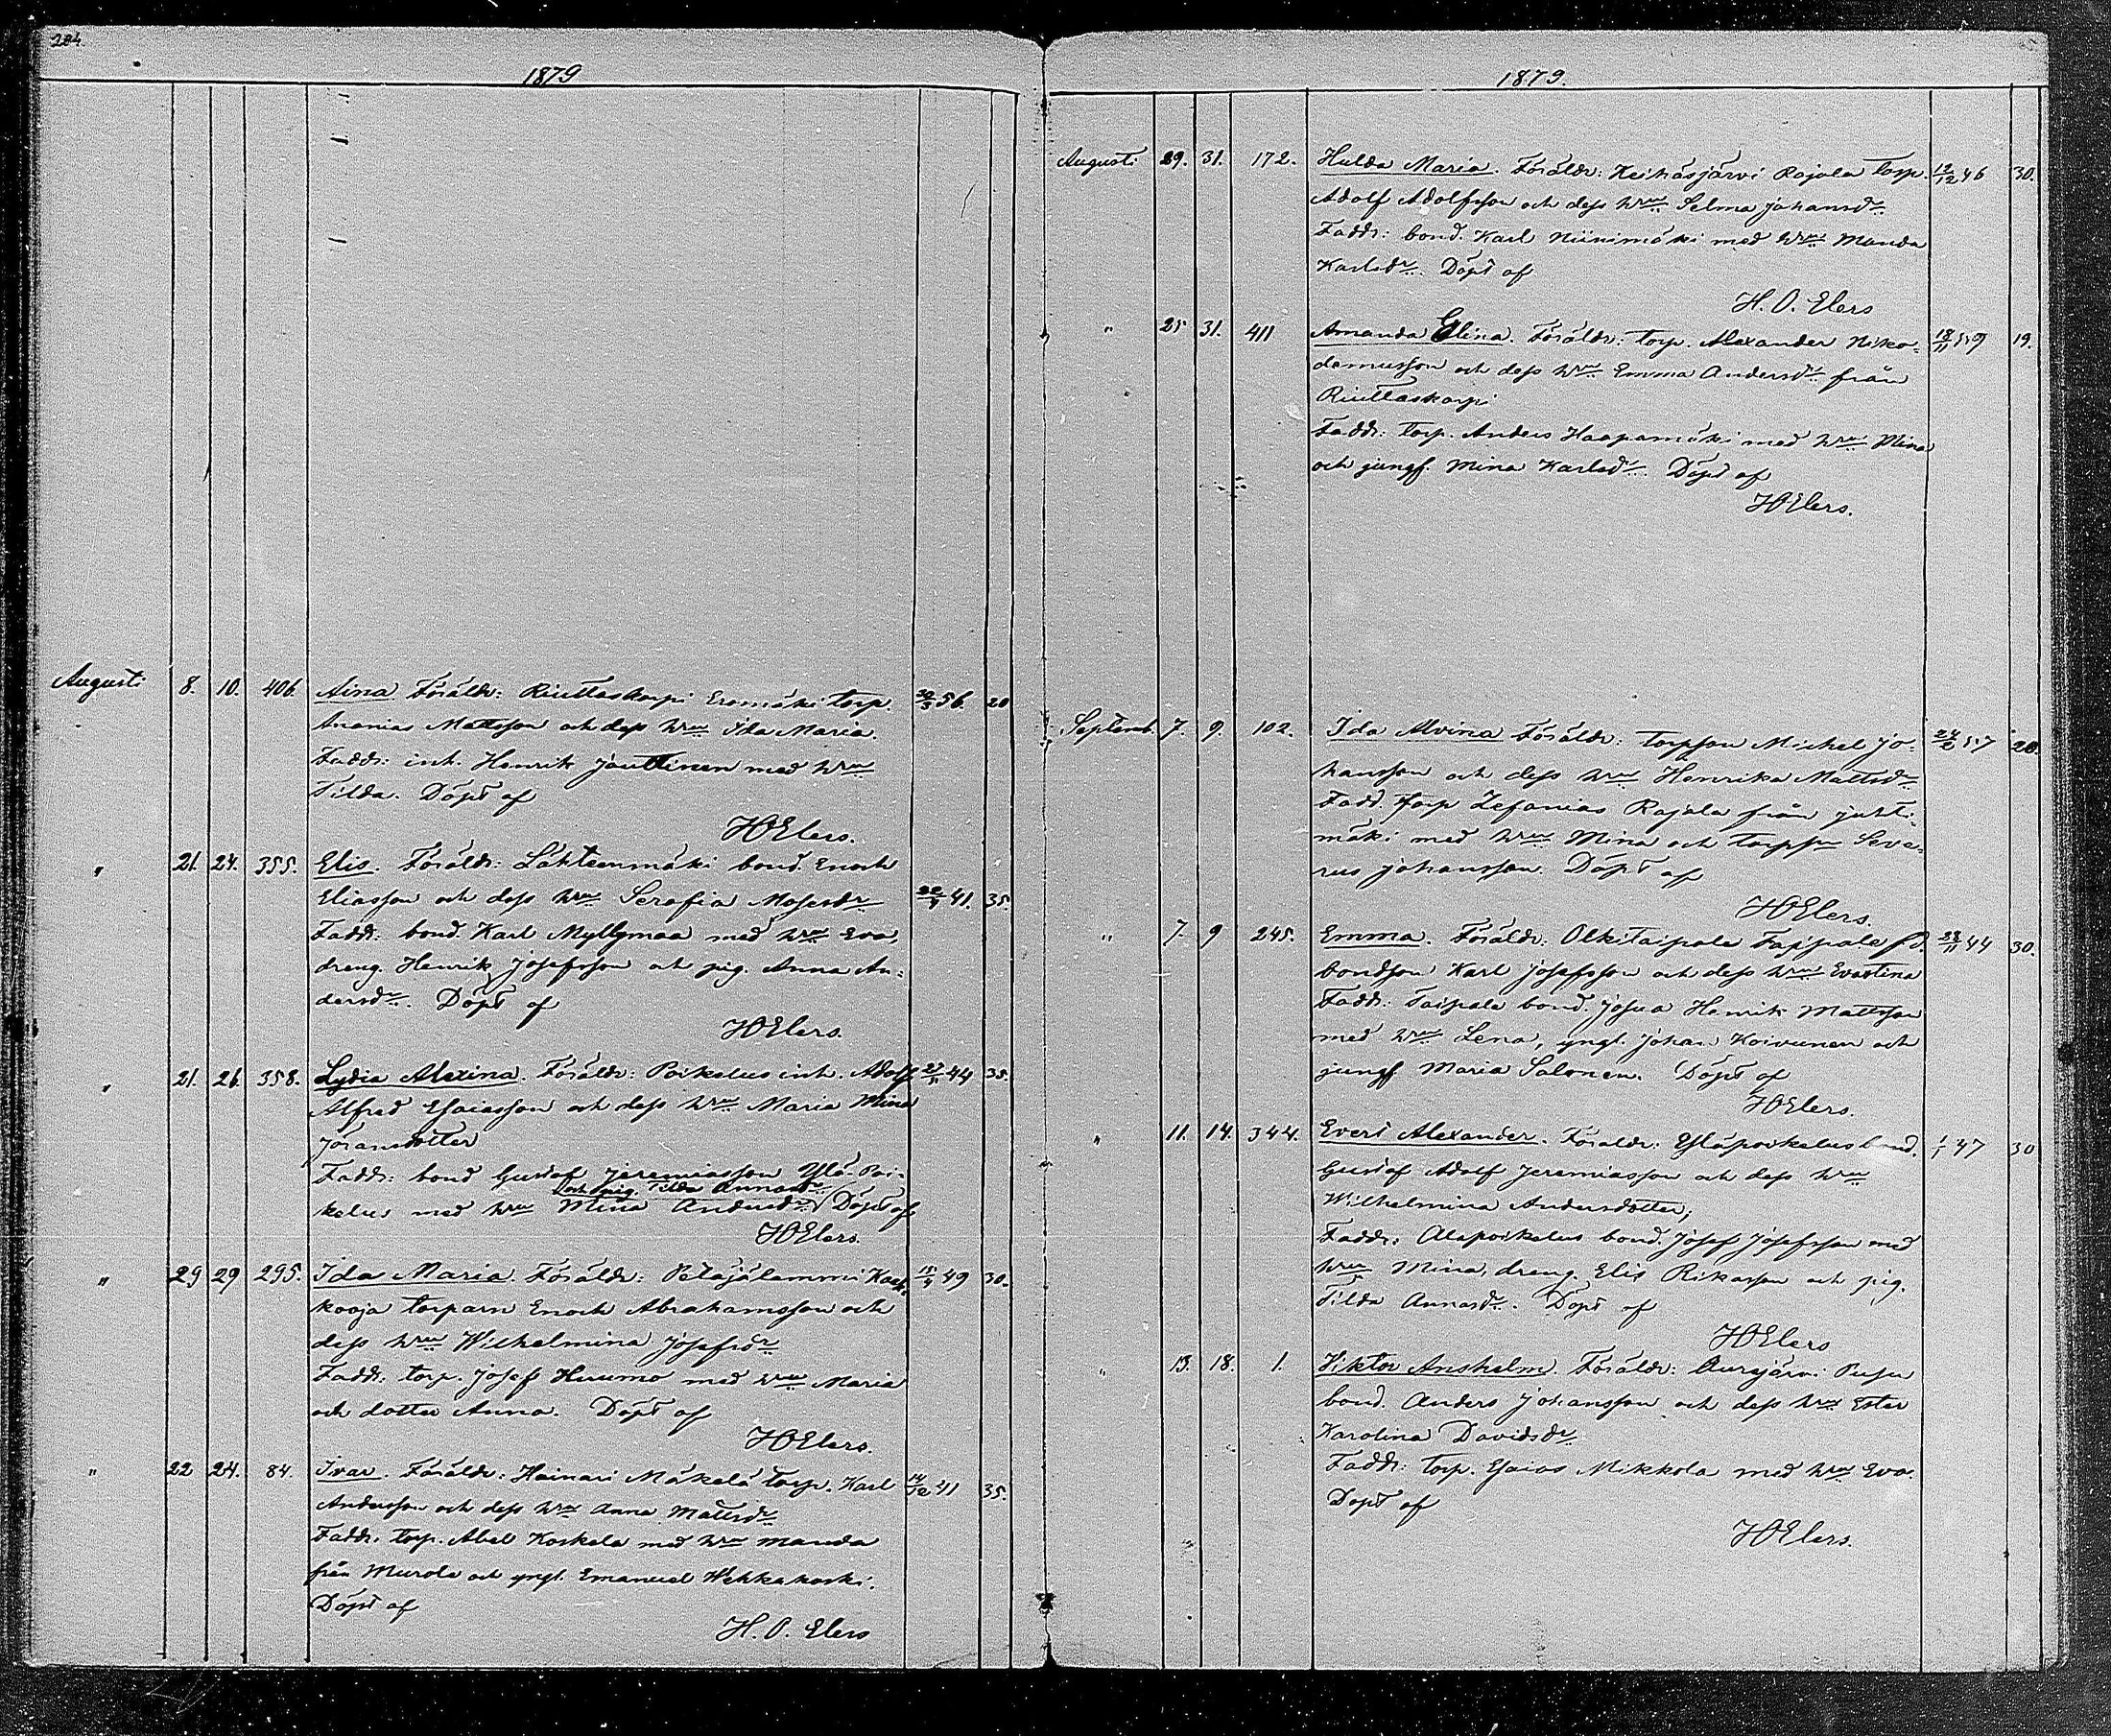 204.
1879
Augusti 8. 10. 406. Aina. Föräldr: Riuttaskorpi Eromäki torp. 56. 20
Ananias Mattsson och dess hru Ida Maria.
Faddr: inh. Henrik Jouttinen med hru
Tilda. Döpt af
HOElers.
" 21. 24. 355. Elis. Föräldr: Lähteenmäki bond. Enoch
Eliasson och dess hru Serafia Mosesdr 41. 35.
Faddr: bond. Karl Myllymaa med hru Eva,
dreng. Henrik Josefsson och pig. Anna An-
dersdr. Döpt af
HOElers.
" 21. 26. 358. Lydia Alexina. Föräldr: Poikelus inh. Adolf 44 35.
Alfred Esaiasson och dess hru Maria Mina
Jöransdotter
Faddr: bond Gustaf Jeremiasson Ylä-Poi-
och pig. Tilda Annasdr
kelus med hru Mina Andersdr Döpt af
HOElers.
" 29 29 295. Ida Maria. Föräldr: Petäjälammi
kooja torparn Enoch Abrahamsson och 15/4 49 30.
dess hru Wilhelmina Josefsdr
Faddr: torp. Josef Huumo med hru Maria
och dotter Anna. Döpt af
HOElers.
" 22 24. 84. Ivar. Föräldr: Hainari Mäkelä torp. Karl 14/12 41 35.
Andersson och dess hru Anna Mattsdr
Faddr. torp. Abel Koskela med hru Manda
från Murole och yngl. Emanuel Wehkakoski.
Döpt af
H. O. Elers
1879.
Augusti 29. 31. 172. Hulda Maria. Föräldr: Keihäsjärvi Rajala torp. 12/12 46 30.
Adolf Adolfsson och dess hru Selma Johansdr
Faddr: bond. Karl Niinimäki med hru Manda
Karlsdr. Döpt af
H. O. Elers
" 25 31. 411 Amanda Elina. Föräldr: torp. Alexander Niko- 18/11 59 19.
demusson och dess hru Emma Andersdr från
Riuttaskorpi
Faddr: torp. Anders Haapamäki med hru Mina
och jungf. Mina Karlsdr. Döpt af
HOElers.
Septemb. 7. 9. 102. Ida Alvina Föräldr: torpson Michel Jo- 24/2 57 20.
hansson och dess hru Henrika Mattsdr
Fadd. torp Zefanias Rajala från Juhti-
mäki med hru Mina och torpson Seve-
rus Johansson. Döpt af
HOElers.
" 7. 9 245. Emma. Föräldr: Olkitaipale Tajpale fd. 44 30.
bondson Karl Josefsson och dess hru Evastina
Faddr: Taipale bond. Josua Henrik Mattsson
med hru Lena, yngl. Johan Koivunen och
jungf Maria Salonen. Döpt af
HOElers.
" 11. 14. 344. Evert Alexander. Föräldr: Yläpoikelus bond. 1/1 47 30
Gustaf Adolf Jeremiasson och dess hru
Wilhelmina Andersdotter;
Faddr: Alapoikelus bond. Josef Josefsson med
hru Mina, dreng. Elis Rikasson och pig.
Tilda Annasdr. Döpt af
HOElers
" 13. 18. 1. Viktor Anshelm. Föräldr: Aurejärvi Pusu
bond. Anders Johansson och dess hru Ester
Karolina Davidsdr
Faddr: torp. Esaias Mikkola med hru Eva.
Döpt af
HOElers.